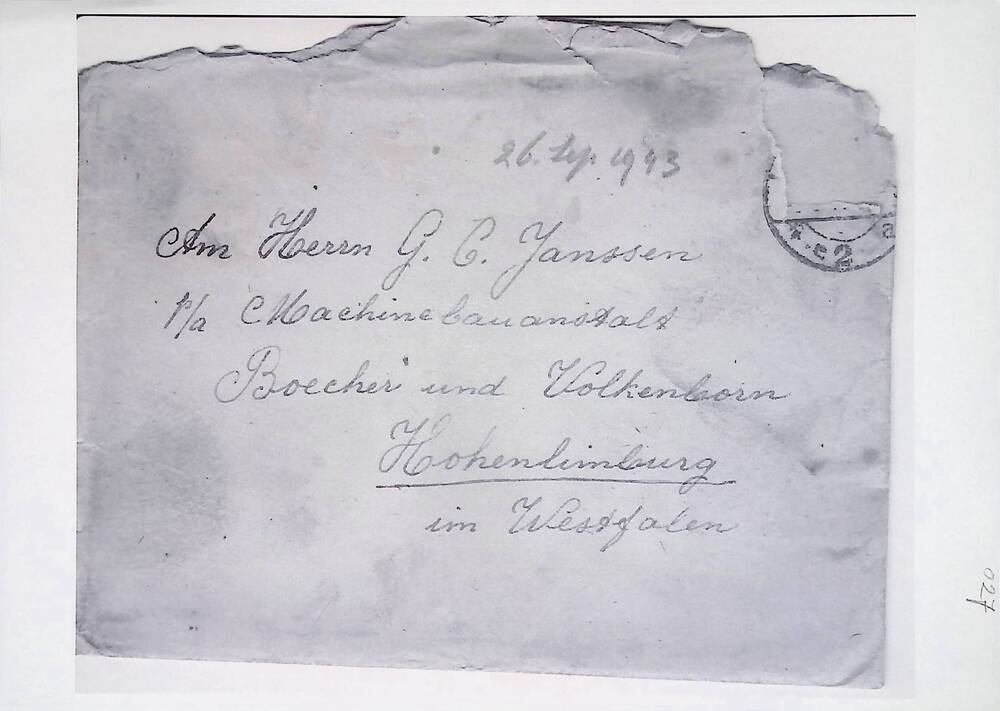 26. Sep. 1943
Am Herrn G. C. Janssen
p/a Machinebauanstalt
Boecker und Volkenborn
Hohenlimburg
im Westfalen
* e2 a
027